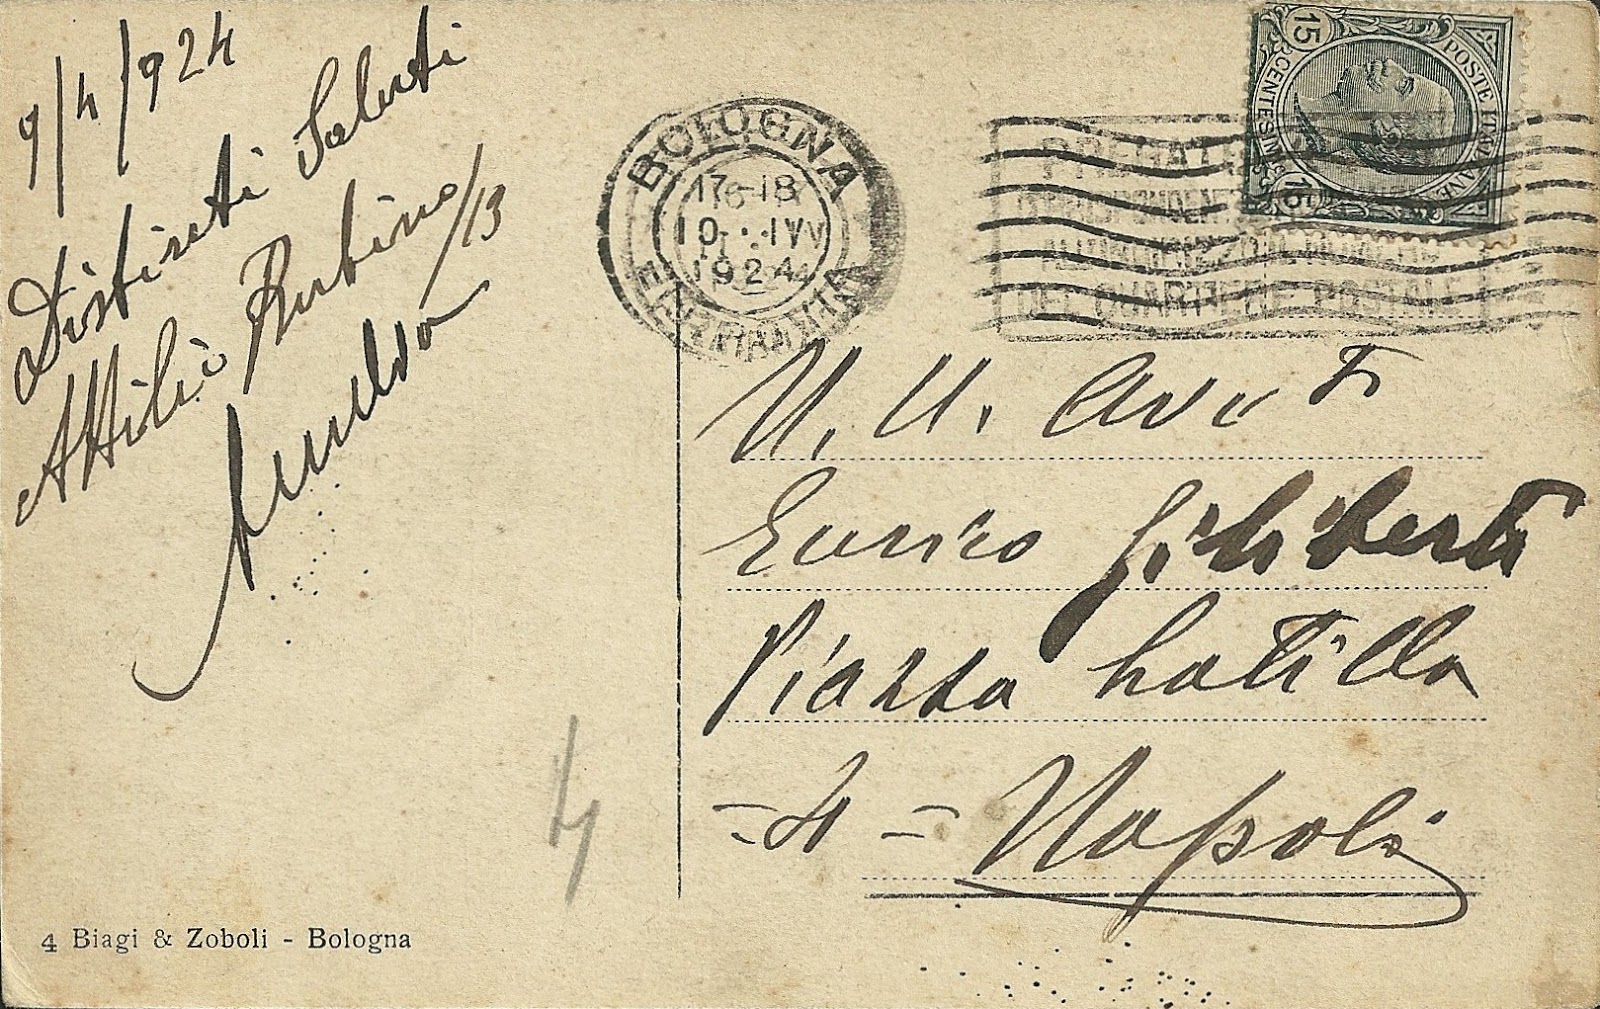 9/4/924
Distinti Saluti
Attilio Rubino/13
BOLOGNA
17-18
10 · IV
1924
FERROVIA
POSTE ITALIANE
15 CENTESIMI 15
PREGATE
CORRISPONDENTI
ALL'INDIRIZZO
DEL QUARTIERE POSTALE
N. U. Avv
Enrico Giliberti
Piazza Latilla
= 4 = Napoli
4
4 Biagi & Zoboli - Bologna